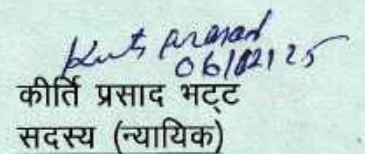 Kirti Prasad
06/02/25
कीर्ति प्रसाद भट्ट
सदस्य (न्यायिक)